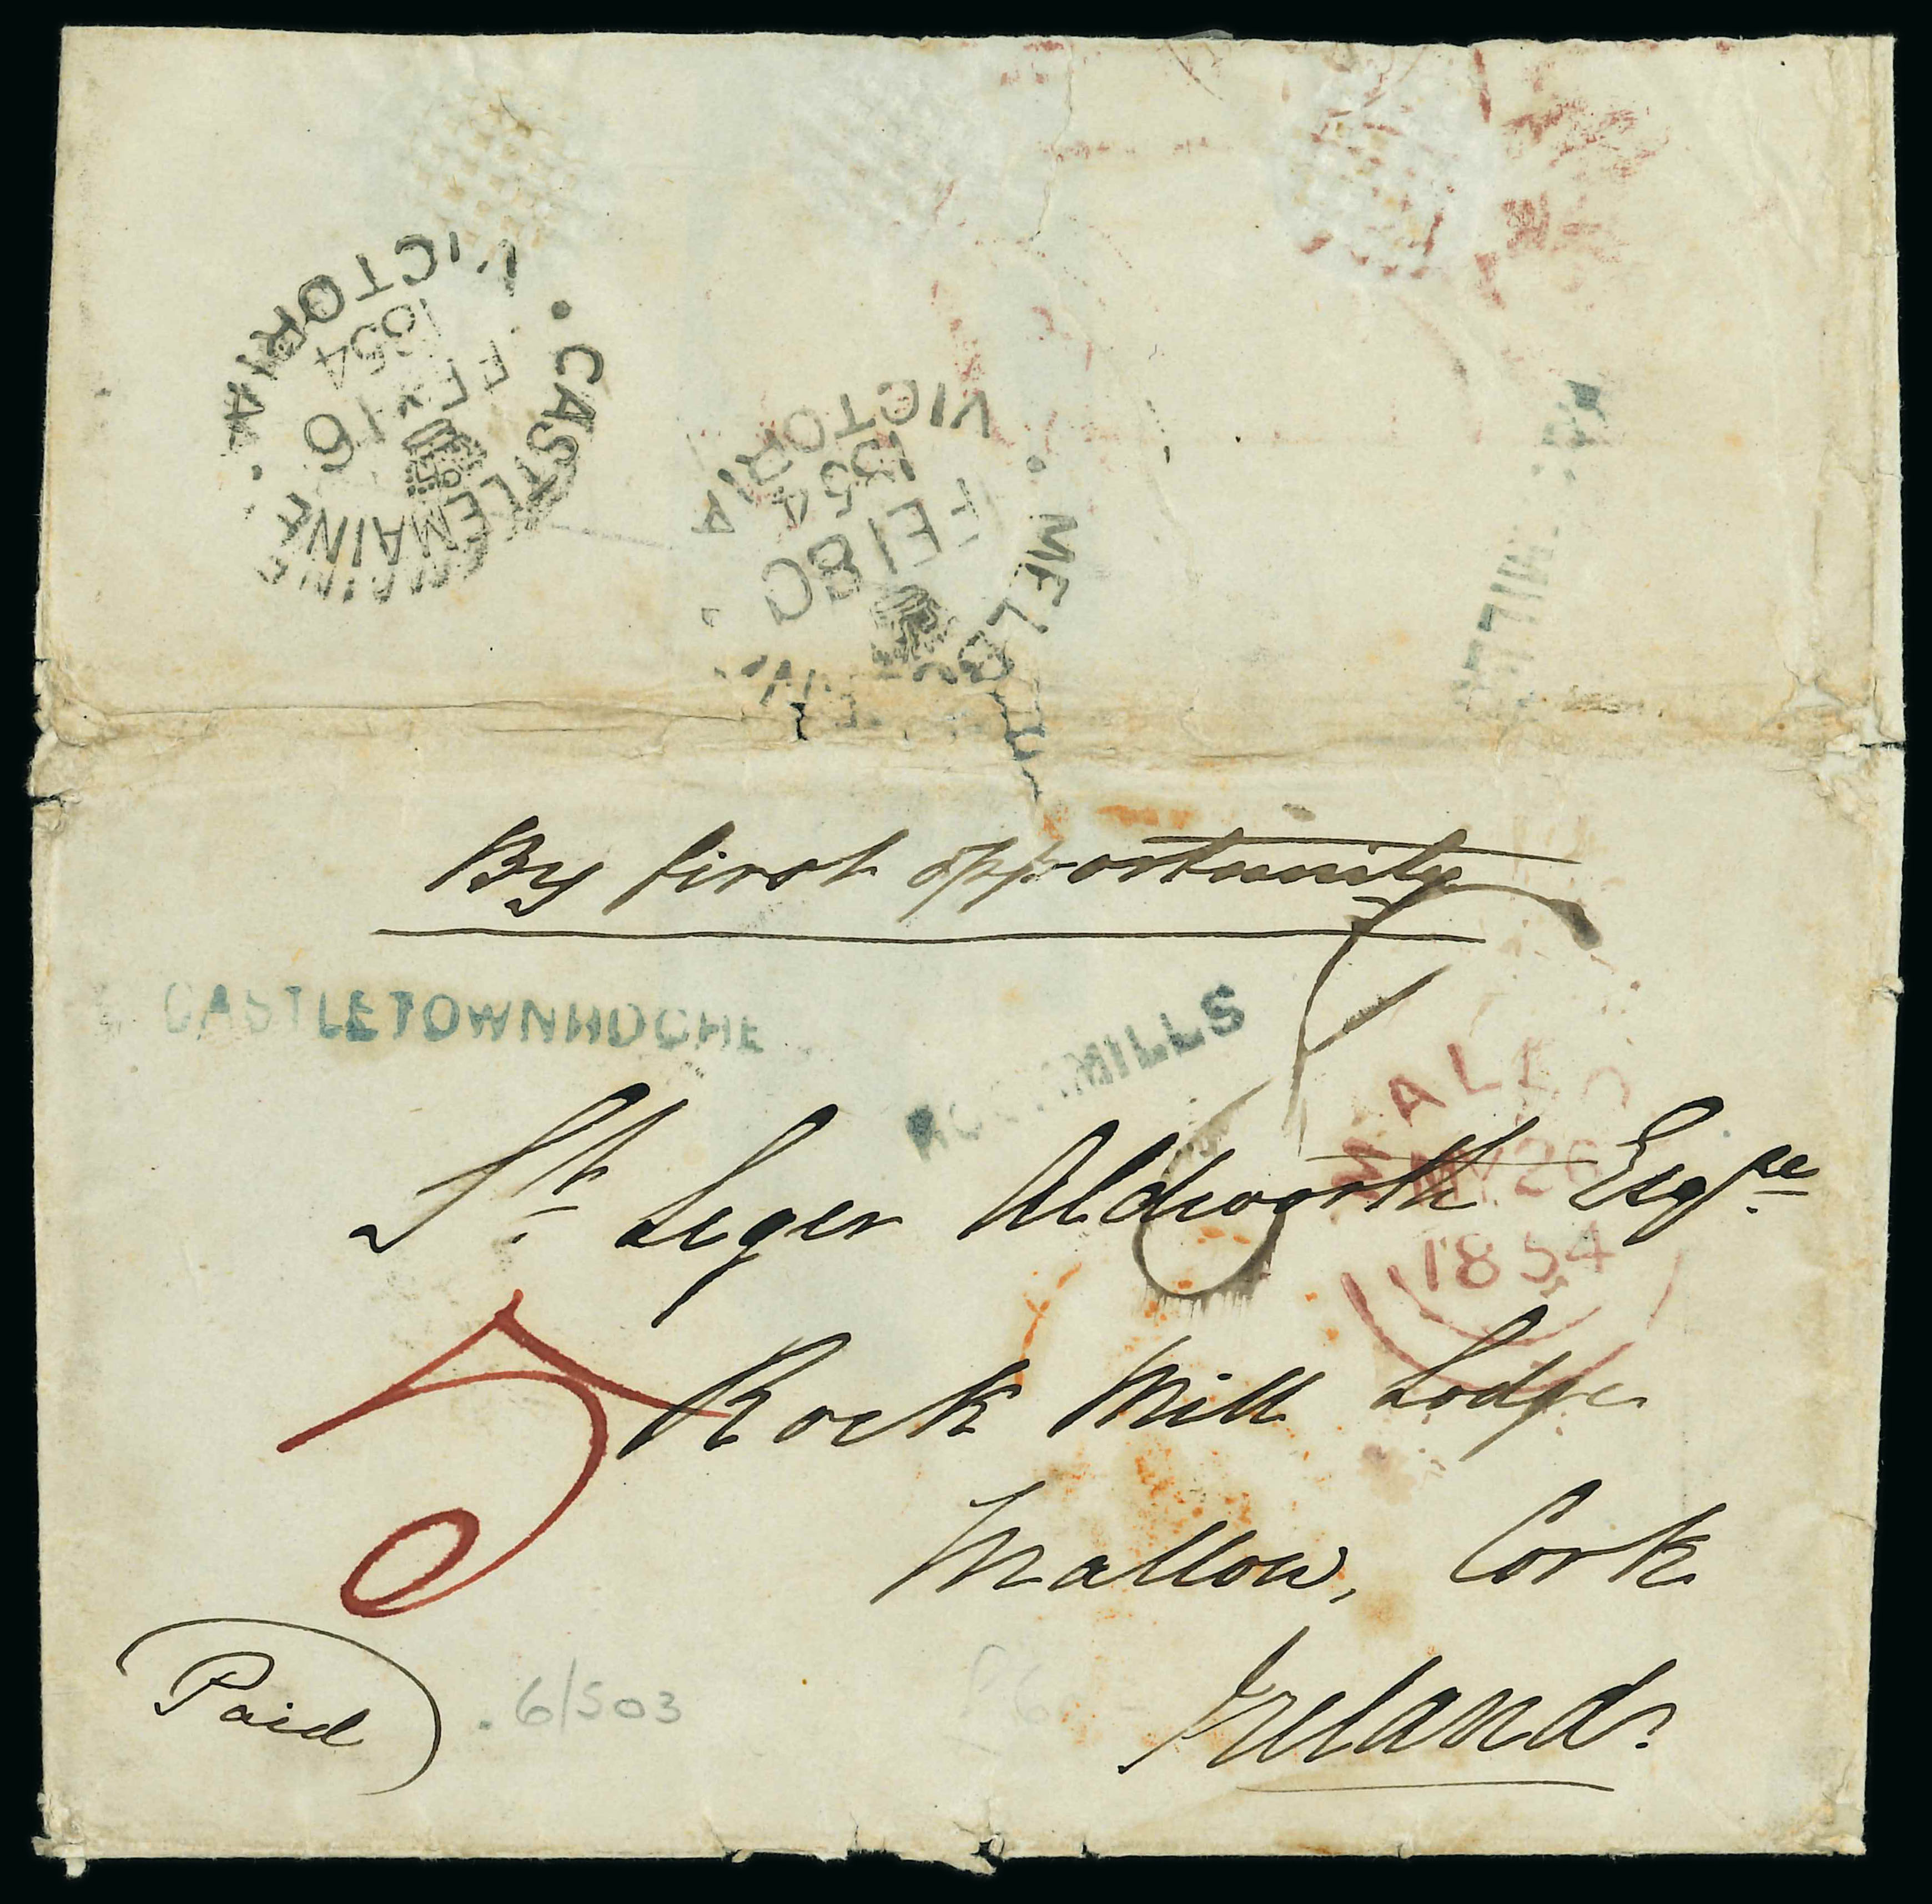 VICTORIA
1854
FE 16
CASTLEMAINE
VICTORIA
1854
FE 18 C
By first opportunity
CASTLETOWNROCHE
MILLS
MALLOW
MY 26
1854
St. Leger Aldworth Esqre
5
Rock Mill Lodge
Mallow, Cork
Ireland.
Paid
6/503